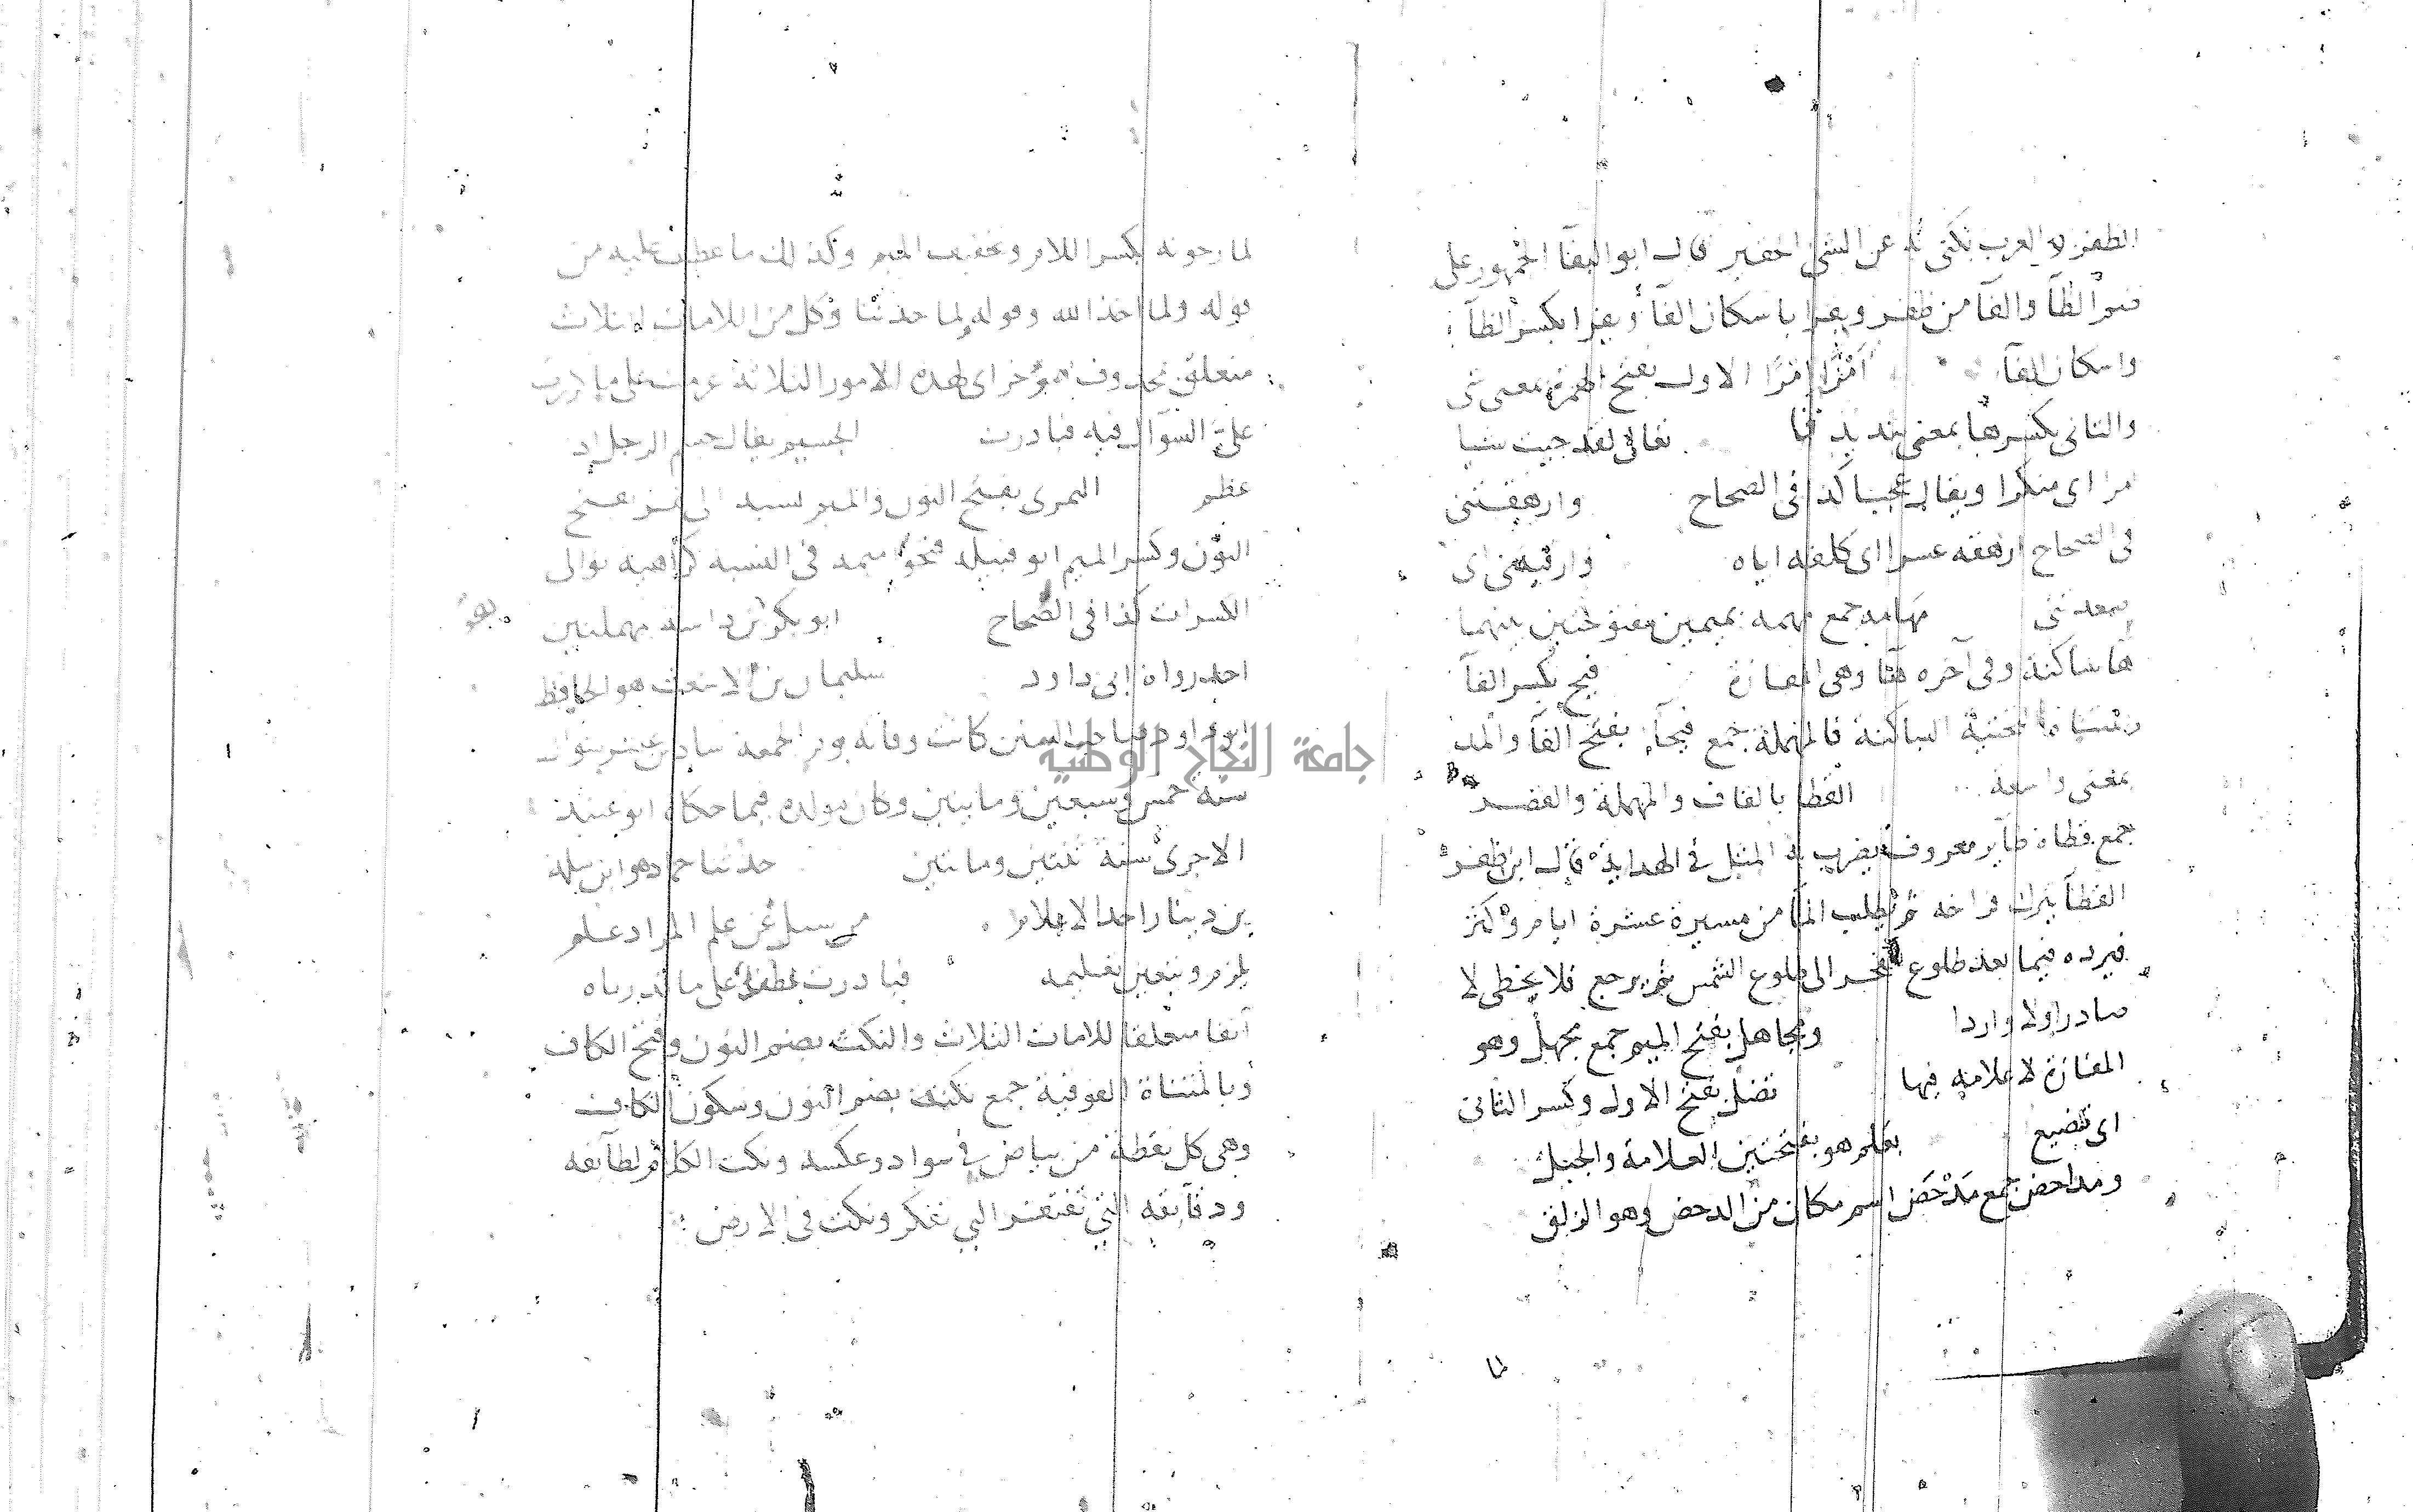 الظفر لان العرب تكنى به عن الشئ الحقير قال ابو البقآ الجمهور على
ضم الظآ والفآ من ظفر ويقرا باسكان الفآ ويقرا بكسر الظآ
واسكان الفآ امرا امرا الاول بفتح الهمزة بمعنى شى
والثانى بكسرها بمعنى شديد تعالى لقد جيت شيا
امرا اى منكرا ويقال عجبا كذا فى الصحاح وارهقتنى
فى الصحاح ارهقه عسرا اى كلفه اياه
مهامه جمع مهمه بميمين مفتوحتين بينهما
ها ساكنة وفى آخره ها وهى المفازة فيح بكسر الفآ
ومثناة تحتية الساكنة فالمهملة جمع فيحآ بفتح الفآ والمد
بمعنى واسعة القطا بالقاف والمهملة والقصر
جمع قطاة طآير معروف يضرب به المثل فى الهداية قال ابن ظفر
القطآ يترك فراخه ثم يطلب المآ من مسيرة عشرة ايام واكثر
فيرده فيما بعد طلوع الفجر الى طلوع الشمس ثم يرجع فلا يخطى لا
صادرا ولا واردا ومجاهل بفتح الميم جمع مجهل وهو
المفازة لا علامة فيها تضل بفتح الاول وكسر الثانى
اى تضيع بعلم هو بفتحتين العلامة والجبل
ومداحض جمع مدحض اسم مكان من الدحض وهو الزلق
لما
لما رجونه بكسر اللام وتخفيف الميم وكذلك ما عطف عليه من
قوله ولما اخذ الله وقوله ولما حدثنا وكل من اللامات الثلاث
متعلق بمحذوف مؤخر اى لهذه الامور الثلاثة عزمت على
على السوآل فيه فبادرت الجسيم يقال جسم الرجل اى
عظم النمرى بفتح النون والميم نسبة الى نمر بفتح
النون وكسر الميم ابو قبيلة فتحوا ميمه فى النسبه كراهية توالى
الكسرات كذا فى الصحاح ابو بكر بن داسه بمهملتين
احد رواة ابى داود سليمان بن الاشعث هو الحافظ
ابو داود صاحب السنن كانت وفاته يوم الجمعة سادس عشر شوال
جامعة النجاح الوطنية
سنة خمس وسبعين ومايتين وكان مولده فيما حكاه ابو عبيد
الاجرى سنة ثنتين ومائتين حدثنا حماد هو ابن سلمة
بن دينار احد الاعلام من سيل عن علم المراد علم
يلزم ويتعين تعليمه فبادرت عطف على ما قدرناه
آنفا متعلقا للامات الثلاث والنكت بضم النون وفتح الكاف
وبالمثناة الفوقية جمع نكتة بضم النون وسكون الكاف
وهى كل نقطة من بياض فى سواد وعكسه ونكت الكلام لطآيفه
ودقآيقه التى تفتقر الى تفكر ونكت فى الارض